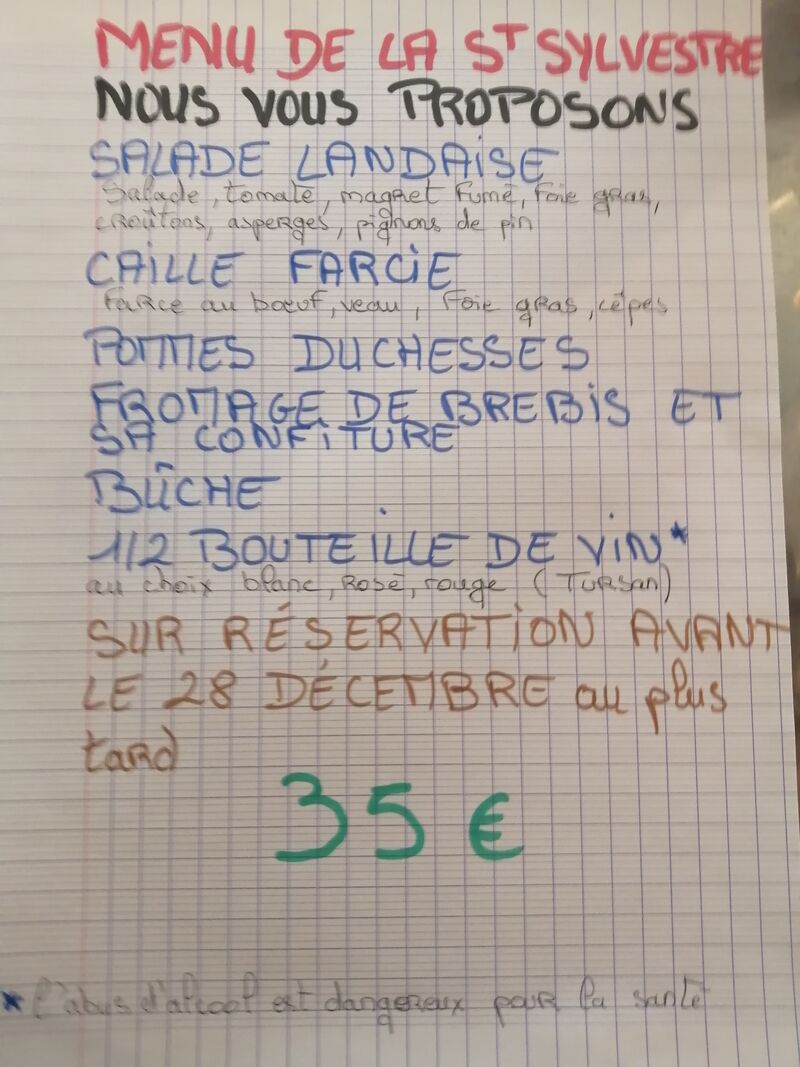 MENU DE LA ST SYLVESTRE
NOUS VOUS PROPOSONS
SALADE LANDAISE
Salade, tomate, magret fumé, foie gras,
croûtons, asperges, pignons de pin
CAILLE FARCIE
farce au bœuf, veau, foie gras, cèpes
POMMES DUCHESSES
FROMAGE DE BREBIS ET
SA CONFITURE
BÛCHE
1/2 BOUTEILLE DE VIN*
au choix blanc, rosé, rouge (Tursan)
SUR RÉSERVATION AVANT
LE 28 DÉCEMBRE au plus
tard
35 €
* l'abus d'alcool est dangereux pour la santé